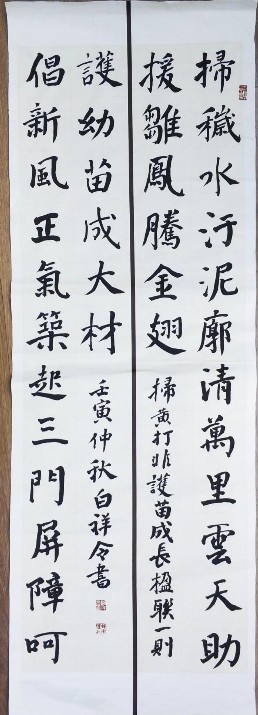 掃穢水汙泥廓清萬里雲天助
援雛鳳騰金翅
掃黃打非護苗成長楹聯一則
倡新風正氣築起三門屏障呵
護幼苗成大材
壬寅仲秋白祥令書